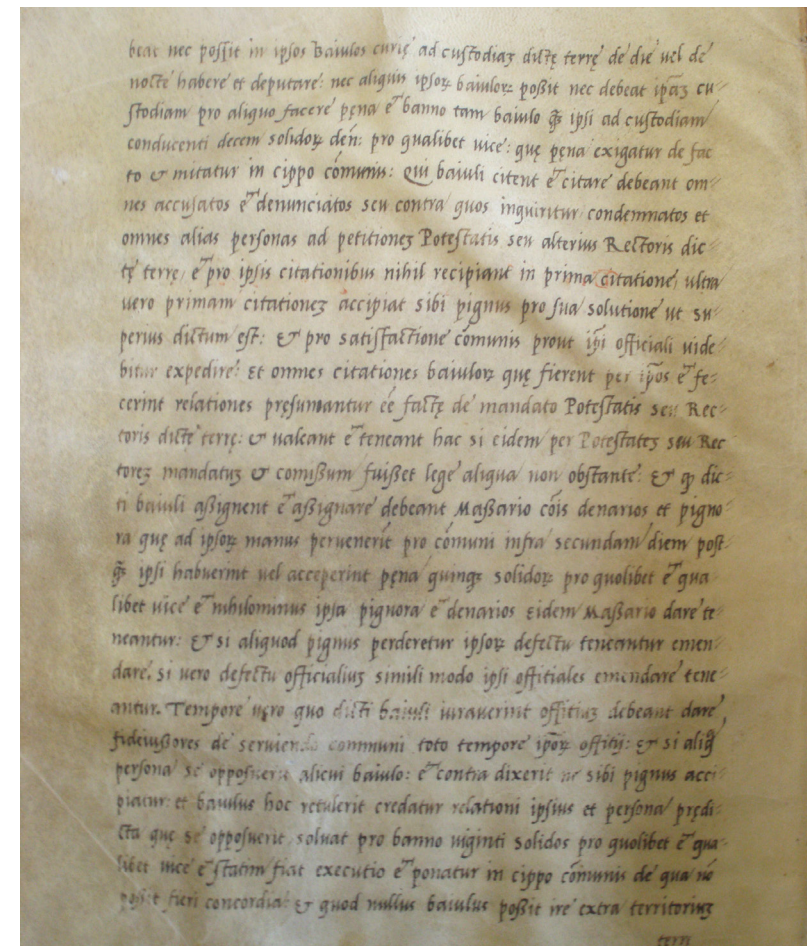 beat nec possit in ipsos Baiulos curię ad custodiaꝫ dictę terrę de die vel de
nocte habere et deputare: nec aliquis ipsoꝝ baiuloꝝ possit nec debeat ip̄aꝫ cu-
stodiam pro aliquo facere pęna et banno tam baiulo q̄ꝫ ipsi ad custodiam
conducenti decem solidoꝝ deń: pro qualibet vice: quę pęna exigatur de fac
to & mitatur in cippo cōmunis: Qui baiuli citent et citare debeant om-
nes accusatos et denunciatos seu contra quos inquiritur condemnatos et
omnes alias personas ad petitioneꝫ Potestatis seu alterius Rectoris dic-
tę terrę, et pro ipsis citationibus nihil recipiant in prima citatione, ultra
uero primam citationeꝫ accipiat sibi pignus pro sua solutione ut su-
perius dictum est: & pro satisfactione cōmunis prout ip̄i officiali uide-
bitur expedire: Et omnes citationes baiuloꝝ quę fierent per ip̄os et fe-
cerint relationes pręsumantur eē factę de mandato Potestatis seu Rec-
toris dictę terrę: & ualeant et teneant hac si eidem per Potestateꝫ seu Rec
toreꝫ mandatuꝫ & comissum fuisset lege aliqua non obstante: & ꝙ dic-
ti baiuli assignent et assignare debeant Massario cōis denarios et pigno-
ra quę ad ipsoꝝ manus peruenerīt pro cōmuni infra secundam diem post-
q̄ꝫ ipsi habuerint uel acceperint pęna quinqꝫ solidoꝝ pro quolibet et qua
libet uice et nihilominus ipsa pignora et denarios eidem Massario dare te-
neantur: & si aliquod pignus perderetur ipsoꝝ defectu teneantur emen-
dare. si uero defectu officialiuꝫ simili modo ipsi offitiales emendare tene-
antur. Tempore uęro quo dicti baiuli iurauerint offitiuꝫ debeant dare
fideiussores de seruiendo communi toto tempore ip̄oꝝ offitij: & si aliq̄
persona se opposuerit alicui baiulo: et contra dixerit ne sibi pignus acci-
piatur: et baiulus hoc retulerit credatur relationi ipsius et persona prędi-
cta quę se opposuerit soluat pro banno uiginti solidos pro quolibet et qua-
libet uice et statim fiat executio et ponatur in cippo cōmunis de qua nō
possit fieri concordia: & quod nullus baiulus possit ire extra territoriuꝫ
terrę